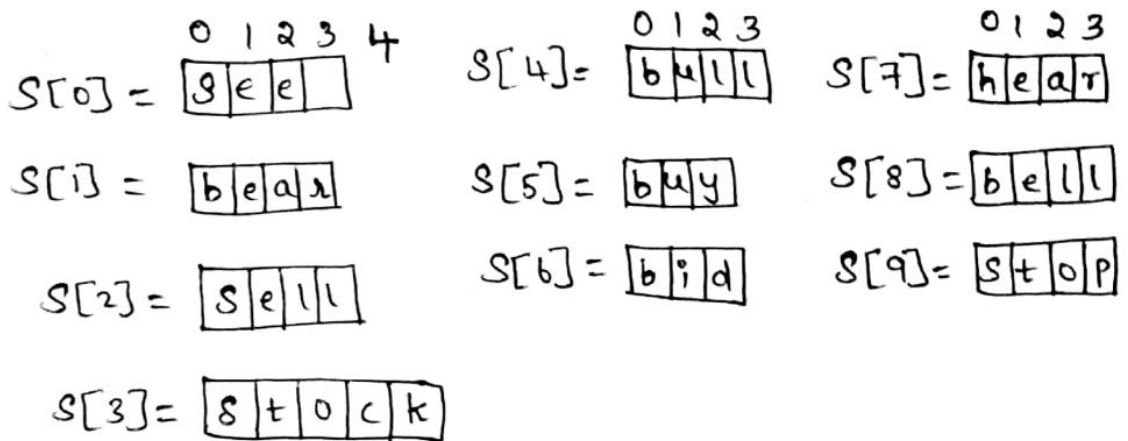 0 1 2 3 4
S[0] = see
S[1] = bear
S[2] = sell
S[3] = stock
0 1 2 3
S[4] = bull
S[5] = buy
S[6] = bid
0 1 2 3
S[7] = hear
S[8] = bell
S[9] = stop